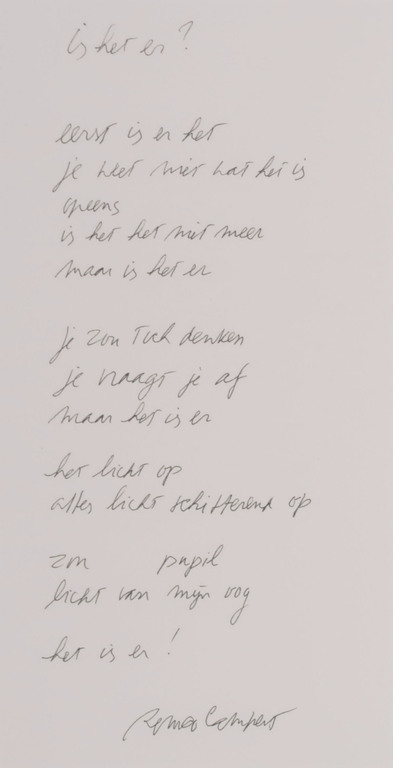 is het er?
eerst is er het
je weet niet wat het is
opeens
is het het niet meer
maar is het er
je zou toch denken
je vraagt je af
maar het is er
het licht op
alles licht schitterend op
zon pupil
licht van mijn oog
het is er!
Remco Campert